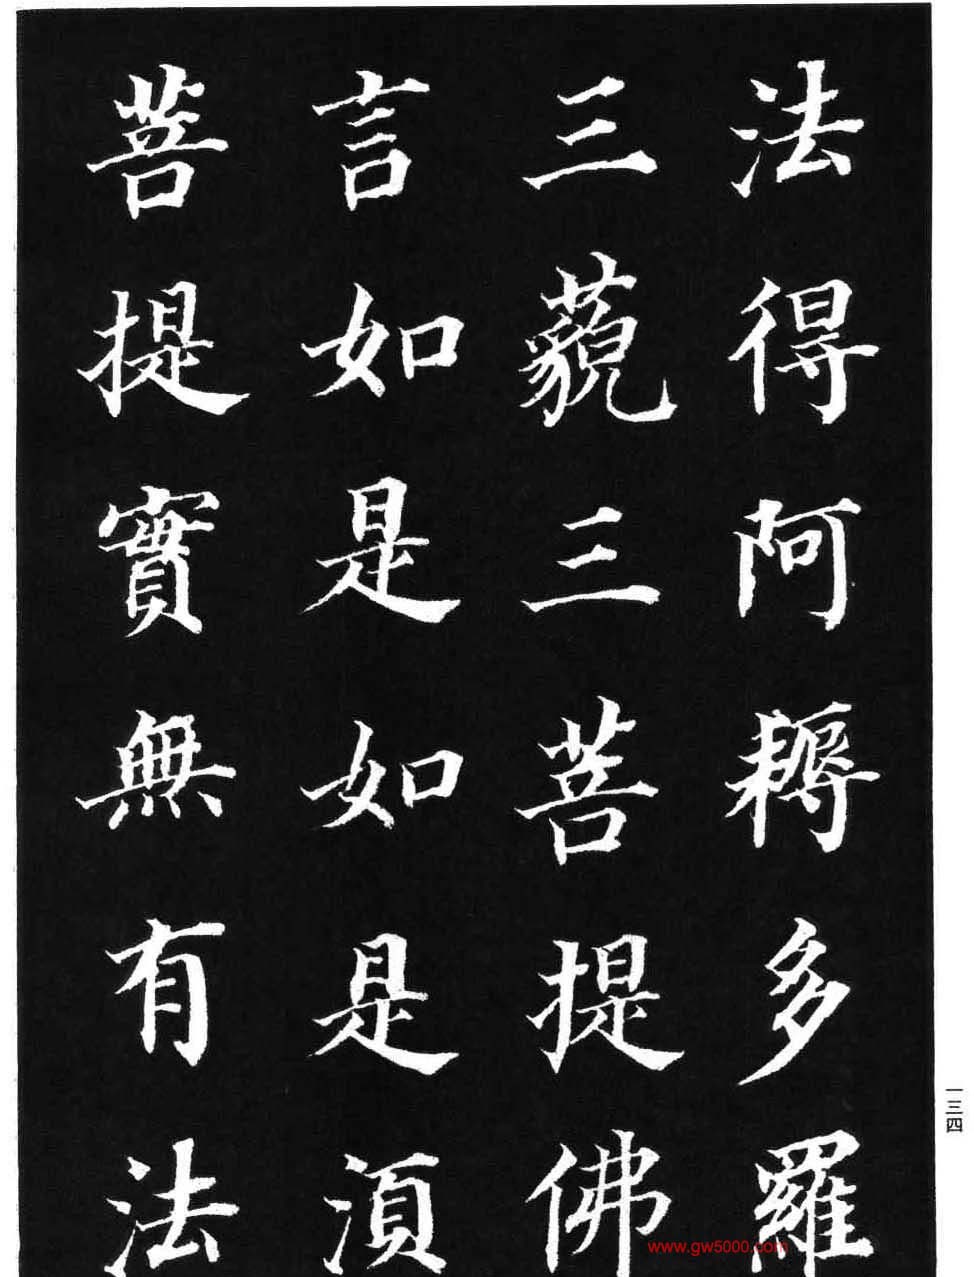 法得阿耨多羅
三藐三菩提佛
言如是如是湏
菩提實無有法
一三四
www.gw5000.com